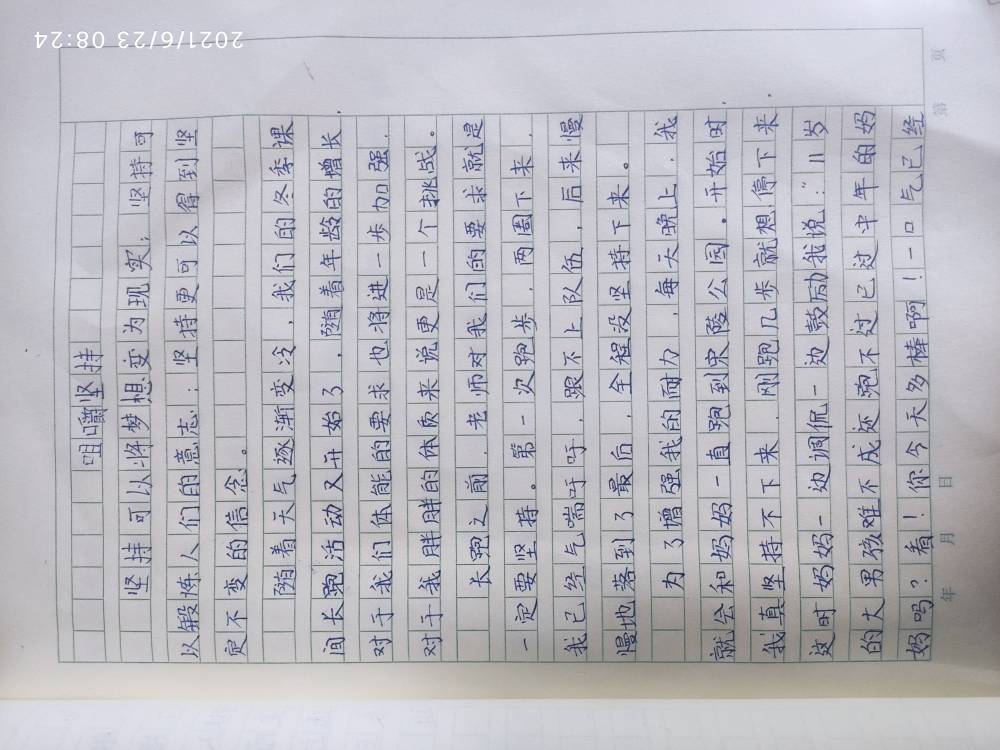 咀嚼坚持
坚持可以将梦想变为现实；坚持可
以锻炼人们的意志；坚持更可以得到坚
定不变的信念。
随着天气逐渐变冷，我们的冬季课
间长跑活动又开始了，随着年龄的增长，
对于我们体能的要求也将进一步加强，
对于我胖胖的体质来说更是一个挑战。
长跑之前，老师对我们的要求就是
一定要坚持。第一次跑步，两圈下来，
我已经气喘吁吁，跟不上队伍，后来慢
慢地落到了最后，全程没坚持下来。
为了增强我的耐力，每天晚上，我
就会和妈妈一直跑到东篱公园。开始时，
我真坚持不下来，刚跑几步就想停下来，
这时妈妈一边调侃一边鼓励我说：“11岁
的大男孩难不成还跑不过已过中年的妈
妈吗？看！你今天多棒啊！一口气已经
年 月 日
第 页
2021/6/23 08:24